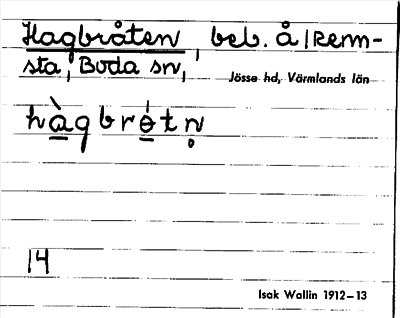 Hagbråten, beb. å Renn-
sta, Boda sn,
Jösse hd, Värmlands län
hàgbrétn̥
14
Isak Wallin 1912–13